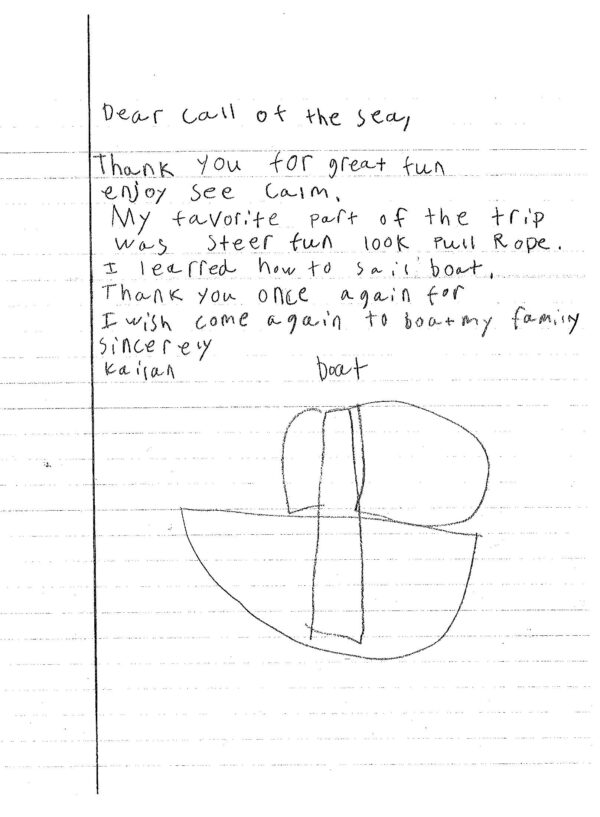 Dear Call of the sea,
Thank you for great fun
enjoy see Calm.
My favorite part of the trip
was Steer fun look Pull Rope.
I learred how to sail boat.
Thank you once again for
I wish come again to boat my family
sincerely
boat